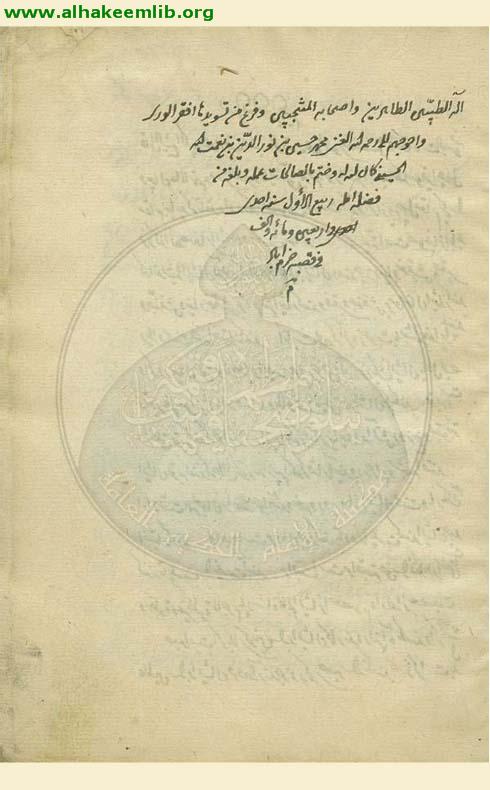 www.alhakeemlib.org
آله الطيبين الطاهرين واصحابه المنتجبين وفرغ من تسويدها افقر الورى
واحوجهم الى رحمة الله الغنى محمد حسين بن نور الدين بن نعمت الله
الحسينى كان الله له وختم بالصالحات عمله وبلغه من
فضله امله ربيع الأول سنه احدى
واربعين ومائه والف
فى قصبه خرم اباد
تم